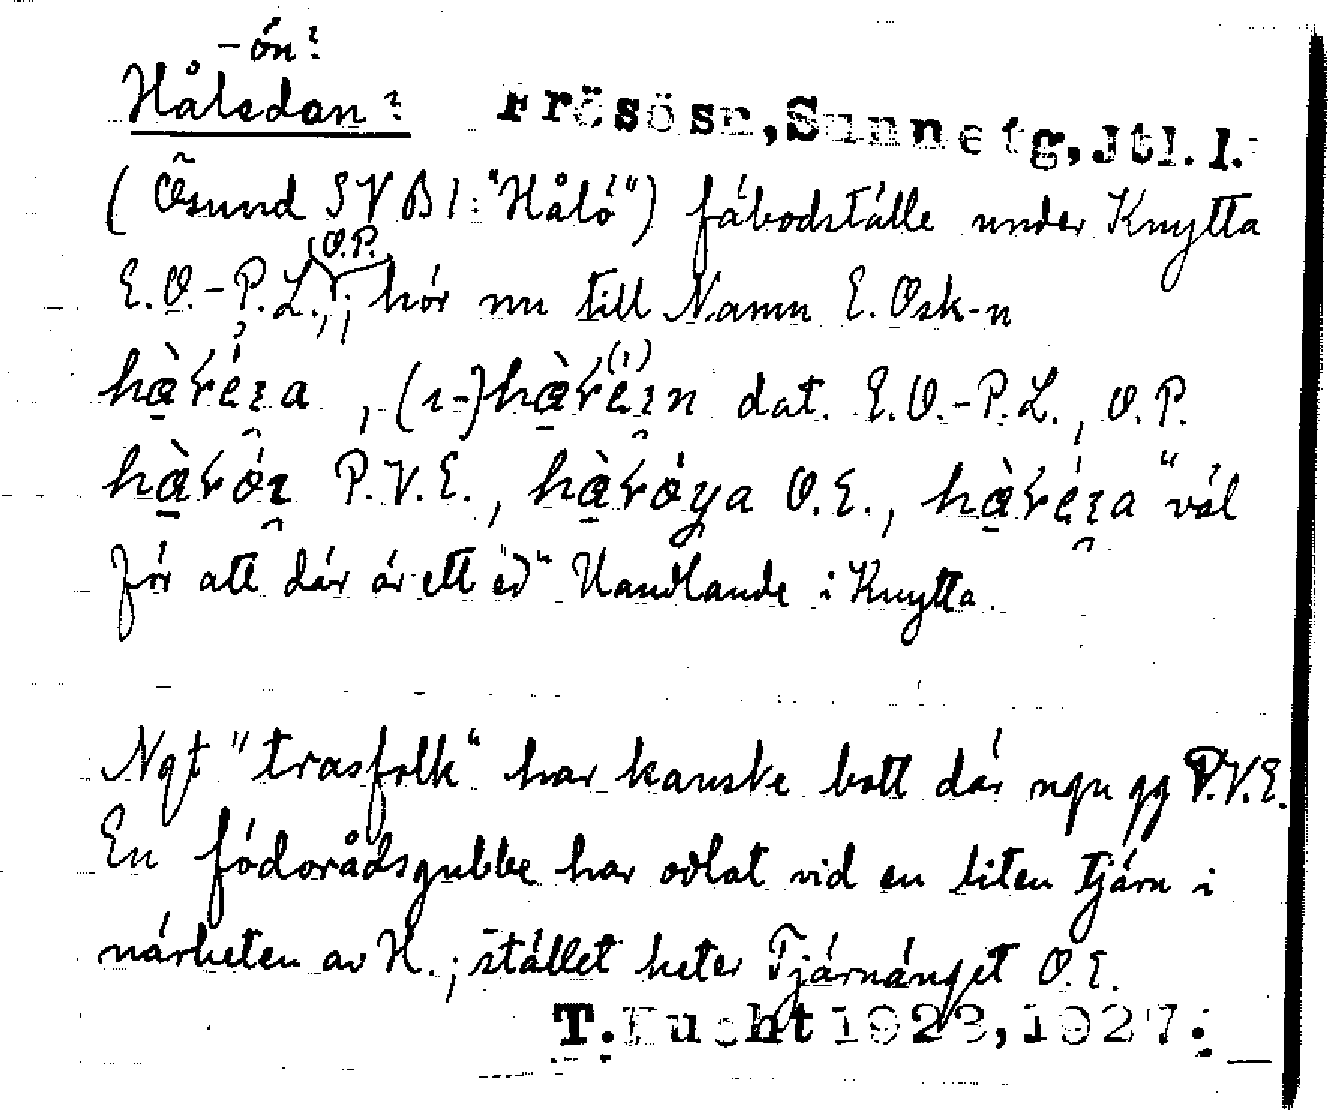 -ön?
Håledan? Frösösn, Sunnetg, Jtl.l.
(Ösund SVB1: "Hålö") fäbodställe under Knytta
O.P.
E.O.-P.L.,; hör nu till Namn E. Osk-n
dat. E.O.-P.L., O.P.
P.V.E., O.E., "väl
för att där är ett ed" Handlande i Knytta.
Ngt "trasfolk" har kanske bott där ngn gg P.V.E.
En födorådsgubbe har odlat vid en liten tjärn i
närheten av H.; stället heter Tjärnänget O.E.
T. Lucht 1923, 1927.